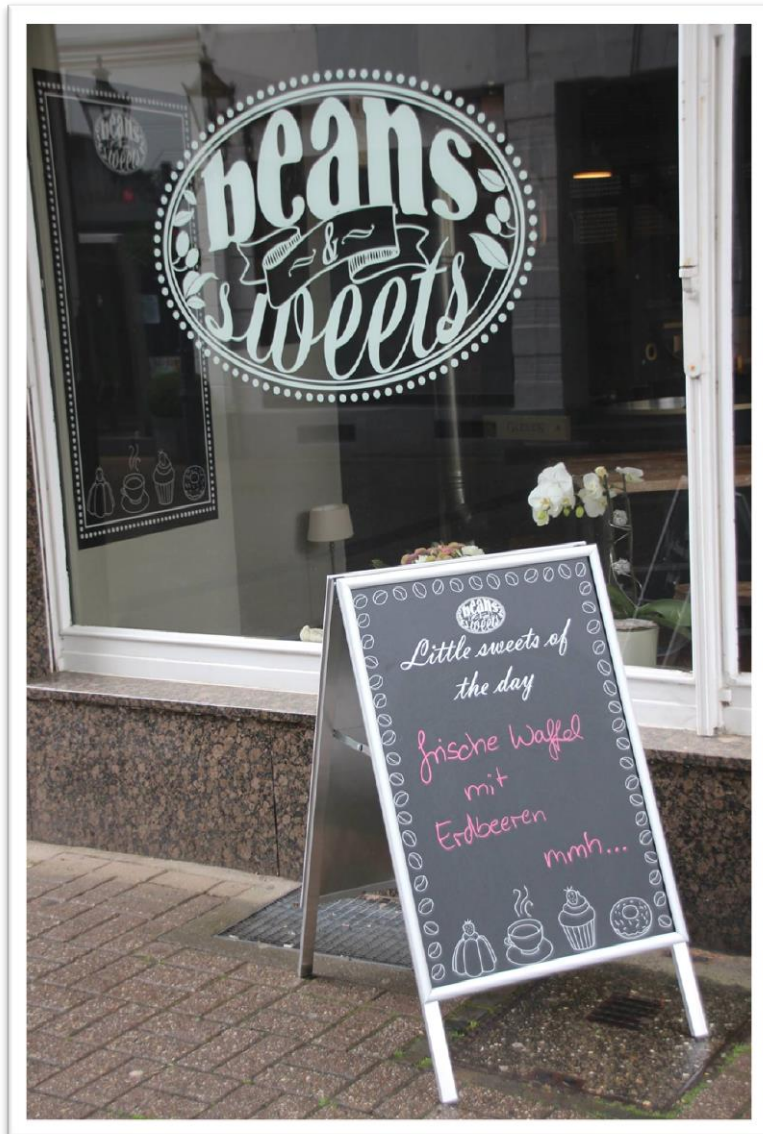 beans
&
sweets
beans
&
sweets
beans
&
sweets
Little sweets of
the day
frische Waffel
mit
Erdbeeren
mmh...